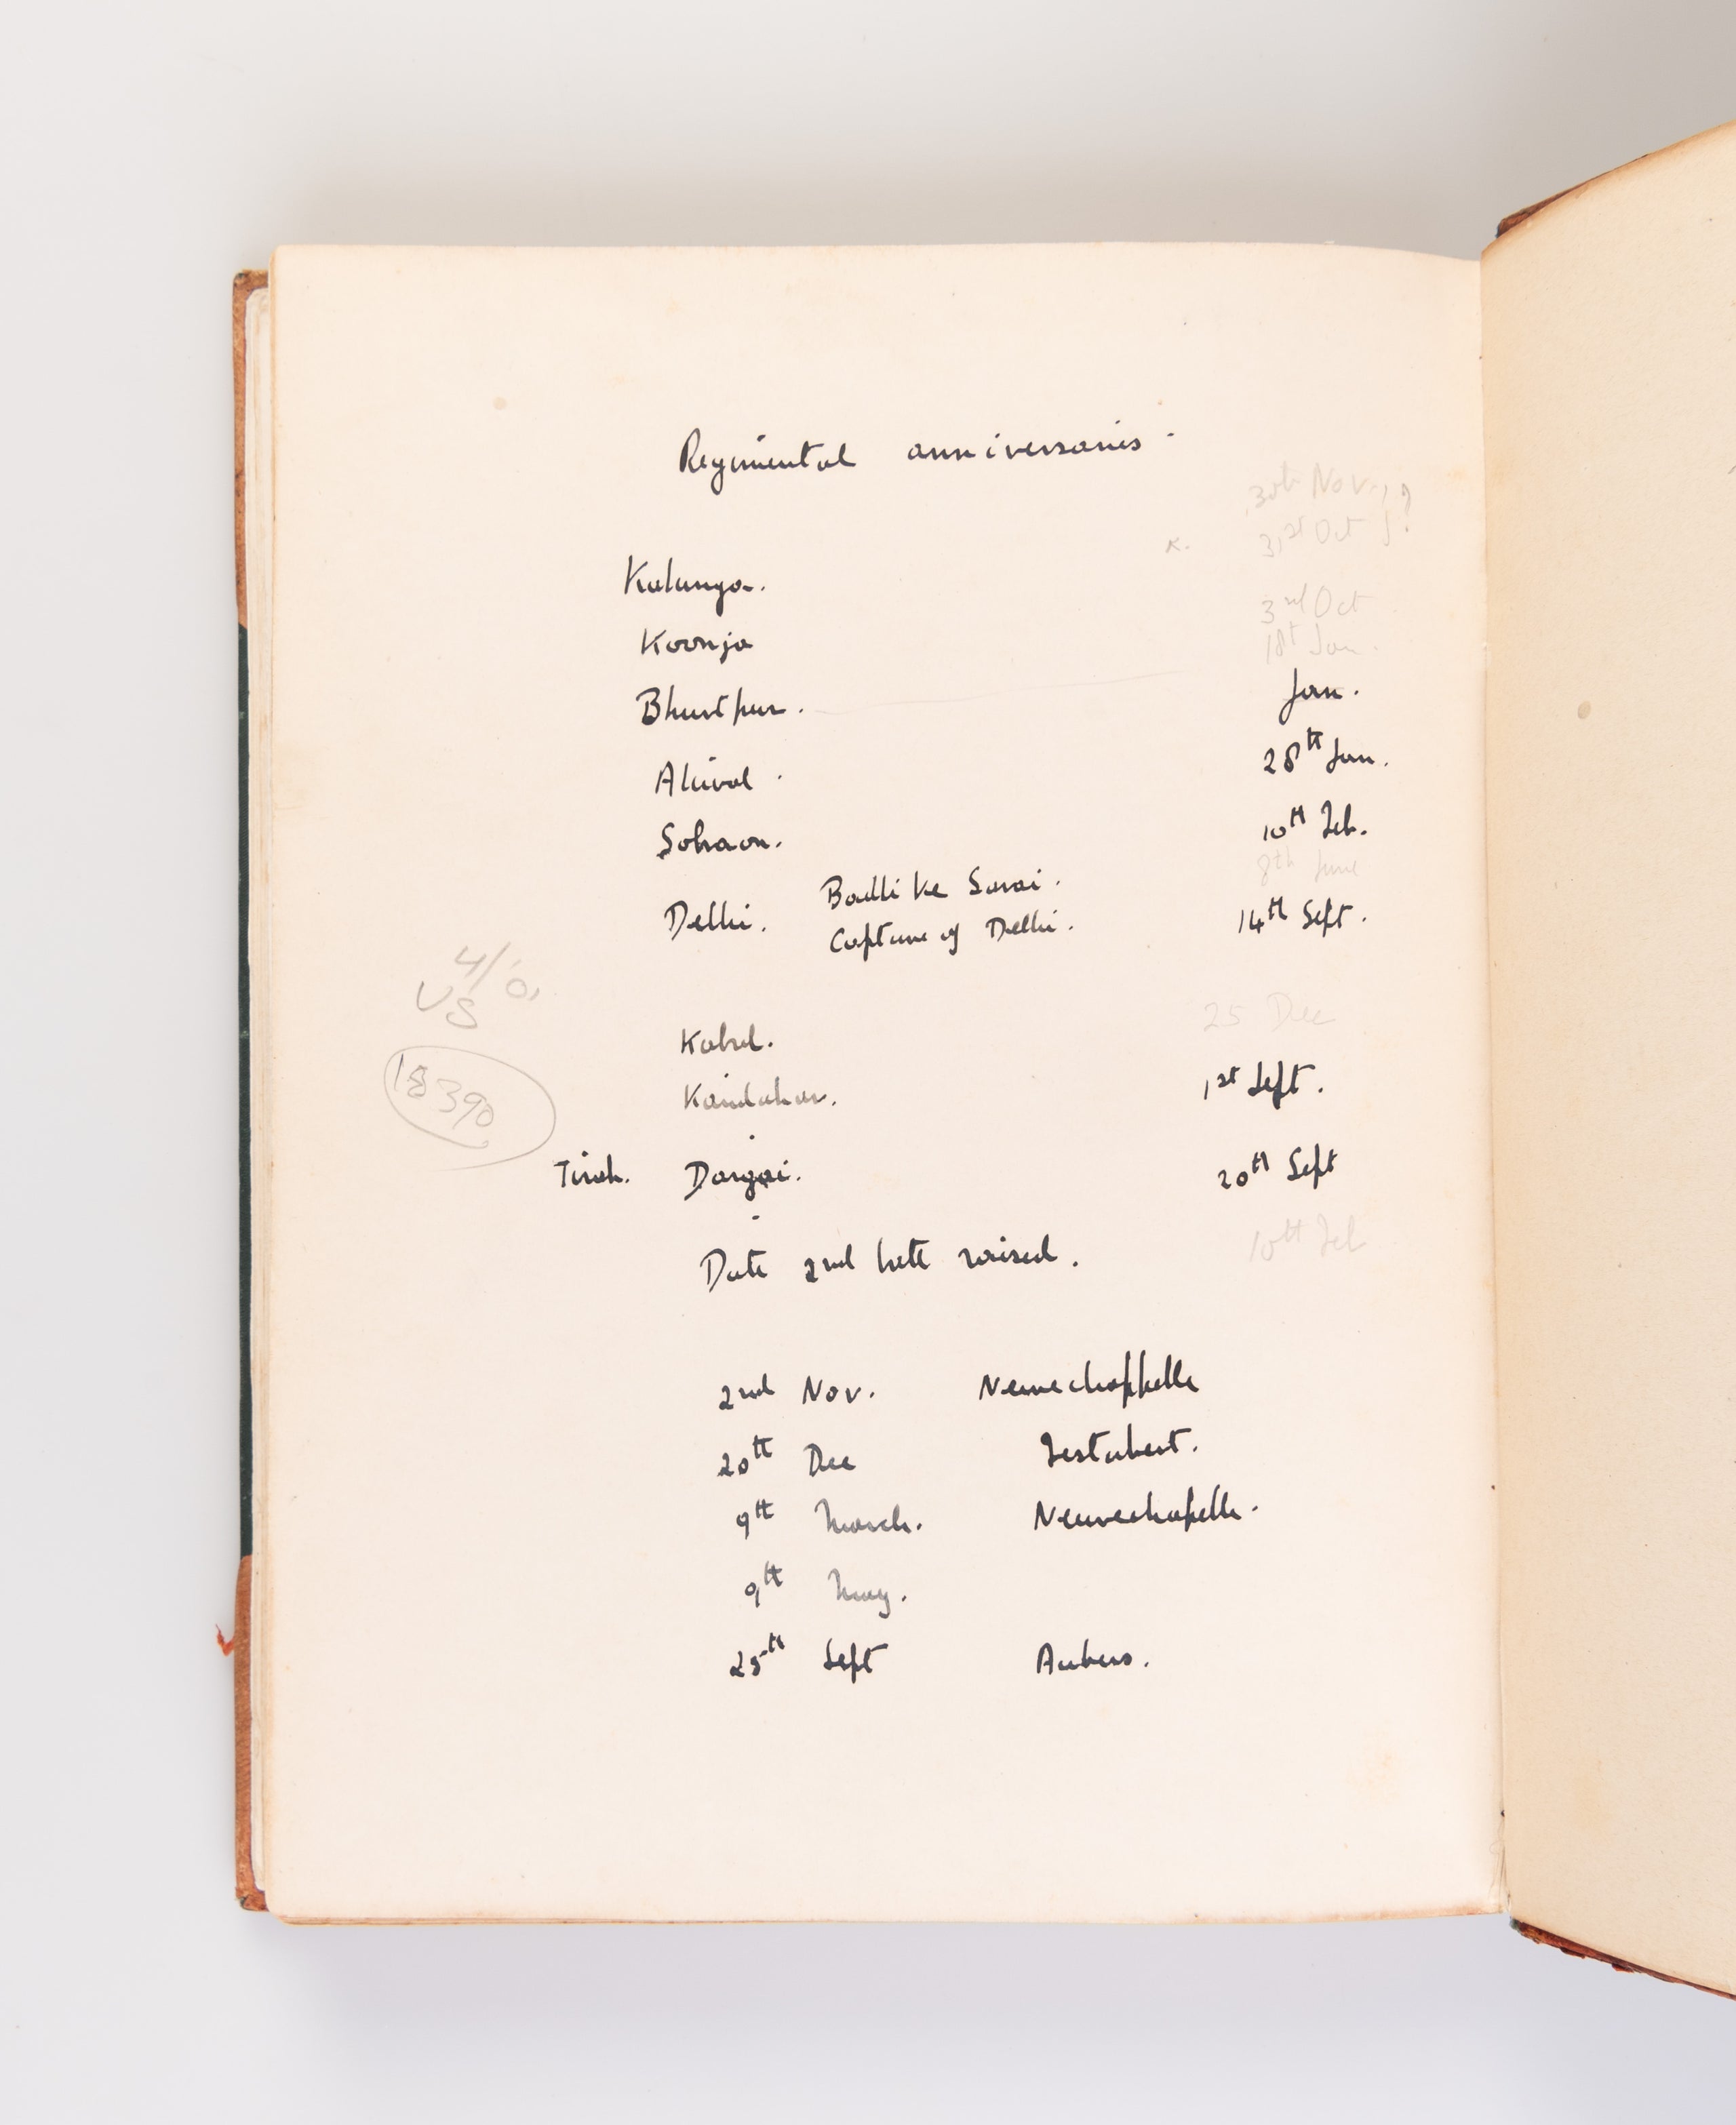 Regimental anniversaries -
30th Nov. ?
K. 31st Oct
Kalunga.
3rd Oct
Koonja 18th Jan.
Bhurtpur. Jan.
Aliwal. 28th Jan.
Sobraon. 10th Feb.
8th June
Delhi. Badli ke Sarai.
Capture of Delhi. 14th Sept.
4/0,
VS
25 Dec
Kabul.
18390
Kandahar. 1st Sept.
Tirah. Dargai. 20th Sept
Date 2nd batt raised. 10th Feb
2nd Nov. Neuvechappelle
20th Dec Festubert.
9th March. Neuvechapelle.
9th May.
25th Sept Aubers.